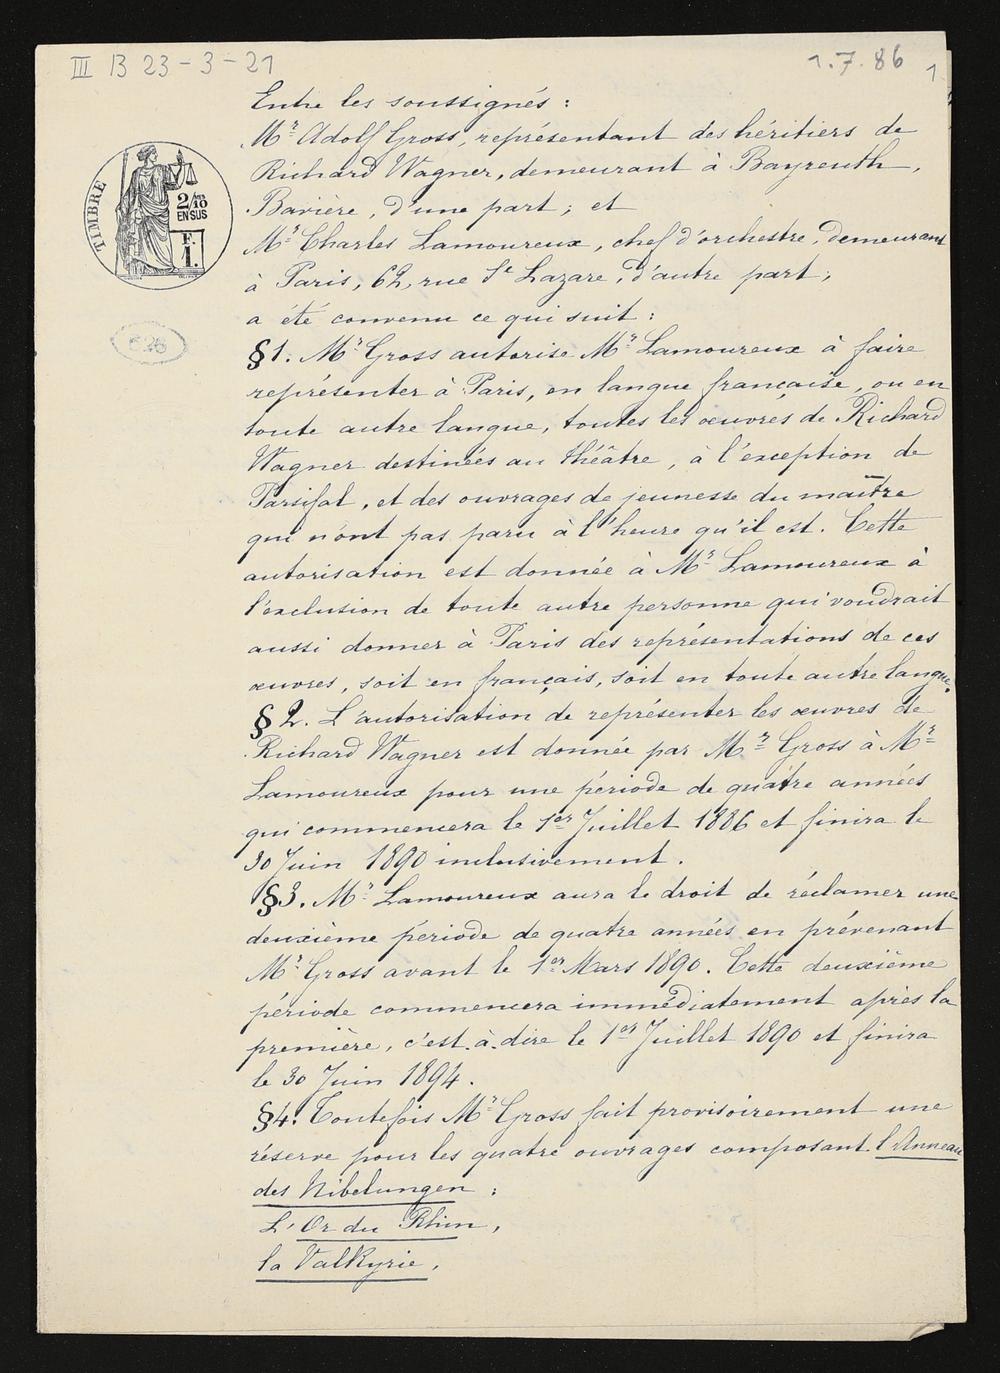 III B 23-3-21
1.7.86
1
TIMBRE
2/10 EN SUS
F. 1.
Entre les soussignés :
Mr Adolf Gross, représentant des héritiers de
Richard Wagner, demeurant à Bayreuth,
Bavière, d'une part ; et
Mr Charles Lamoureux, chef d'orchestre, demeurant
à Paris, 62, rue St Lazare, d'autre part ;
a été convenu ce qui suit :
§1. Mr Gross autorise Mr Lamoureux à faire
représenter à Paris, en langue française, ou en
toute autre langue, toutes les œuvres de Richard
Wagner destinées au théâtre, à l'exception de
Parsifal, et des ouvrages de jeunesse du maître
qui n'ont pas paru à l'heure qu'il est. Cette
autorisation est donnée à Mr Lamoureux à
l'exclusion de toute autre personne qui voudrait
aussi donner à Paris des représentations de ces
œuvres, soit en français, soit en toute autre langue.
§2. L'autorisation de représenter les œuvres de
Richard Wagner est donnée par Mr Gross à Mr
Lamoureux pour une période de quatre années
qui commencera le 1er Juillet 1886 et finira le
30 Juin 1890 inclusivement.
§3. Mr Lamoureux aura le droit de réclamer une
deuxième période de quatre années en prévenant
Mr Gross avant le 1er Mars 1890. Cette deuxième
période commencera immédiatement après la
première, c'est à dire le 1er Juillet 1890 et finira
le 30 Juin 1894.
§4. Toutefois Mr Gross fait provisoirement une
réserve pour les quatre ouvrages composant l'Anneau
des Nibelungen :
L'Or du Rhin,
la Valkyrie,